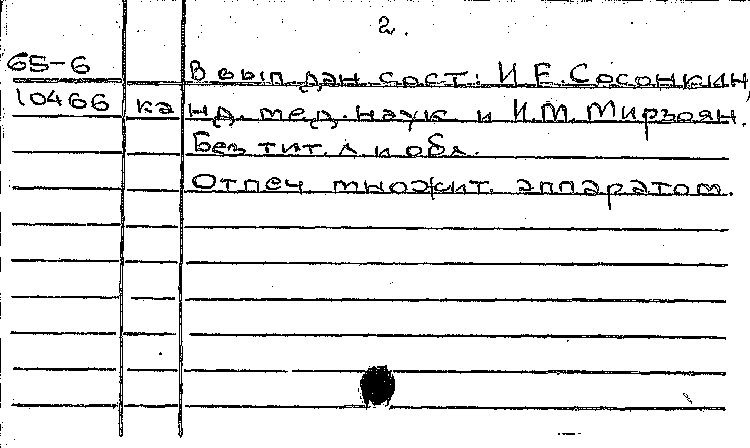 2.
65-6 В вып. дан. сост.: И.Е. Сосонкин,
10466 ка нд. мед. наук и И.М. Мирзоян.
Без тит. л. и обл.
Отпеч. множит. аппаратом.